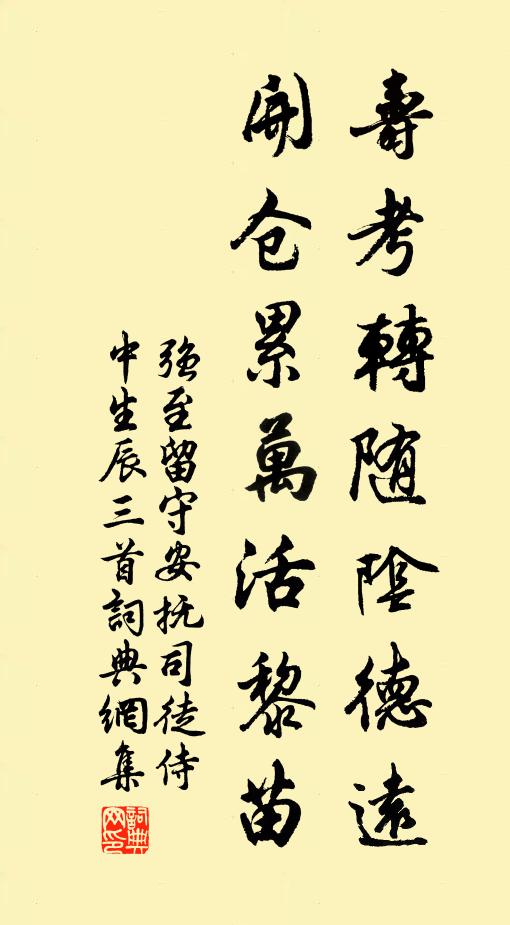 壽考轉随陰德遠
開仓累萬活黎苗
强至留守安抚司徒侍
中生辰三首詞典網集
詞典网印